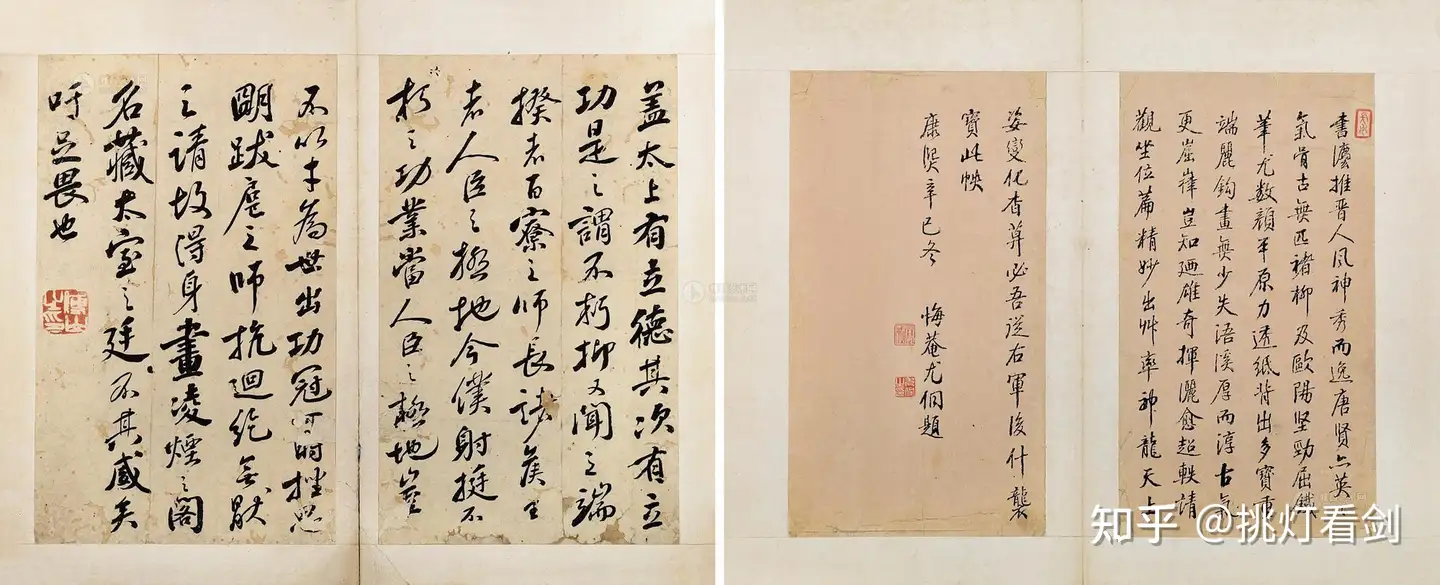 蓋太上有立德其次有立
功是之謂不朽抑又聞之端
揆者百寮之師長諸侯王
者人臣之極地今僕射挺不
朽之功業當人臣之極地豈
不以才為世出功冠一時挫思
明跋扈之師抗迴紇無猒
之請故得身畫凌煙之閣
名藏太室之廷不其盛矣
吁足畏也
書灋推晉人風神秀而逸唐賢亦英
氣骨古無匹褚柳及歐陽堅勁屈鐵
筆尤數顏平原力透紙背出多寶
端麗鉤畫無少失浯溪厚而淳古氣
更崔嵂豈知廼雄奇揮灑愈超軼請
觀坐位藁精妙出艸率神龍天上
姿變化杳莫必吾從右軍後什襲
寶此帙
康熙辛巳冬 悔菴尤侗題
知乎 @挑灯看剑